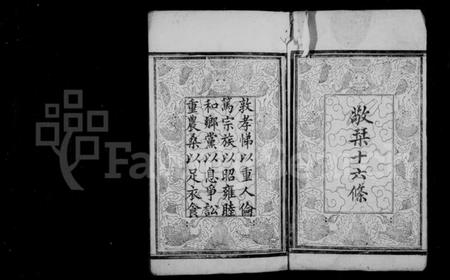 敬栞十六條
敦孝悌以重人倫
篤宗族以昭雍睦
和鄉黨以息爭訟
重農桑以足衣食